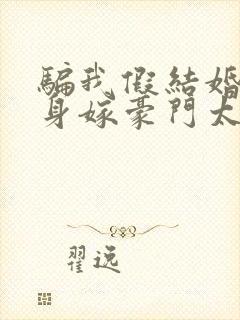 騙我假結婚
身嫁豪門太
翟逸